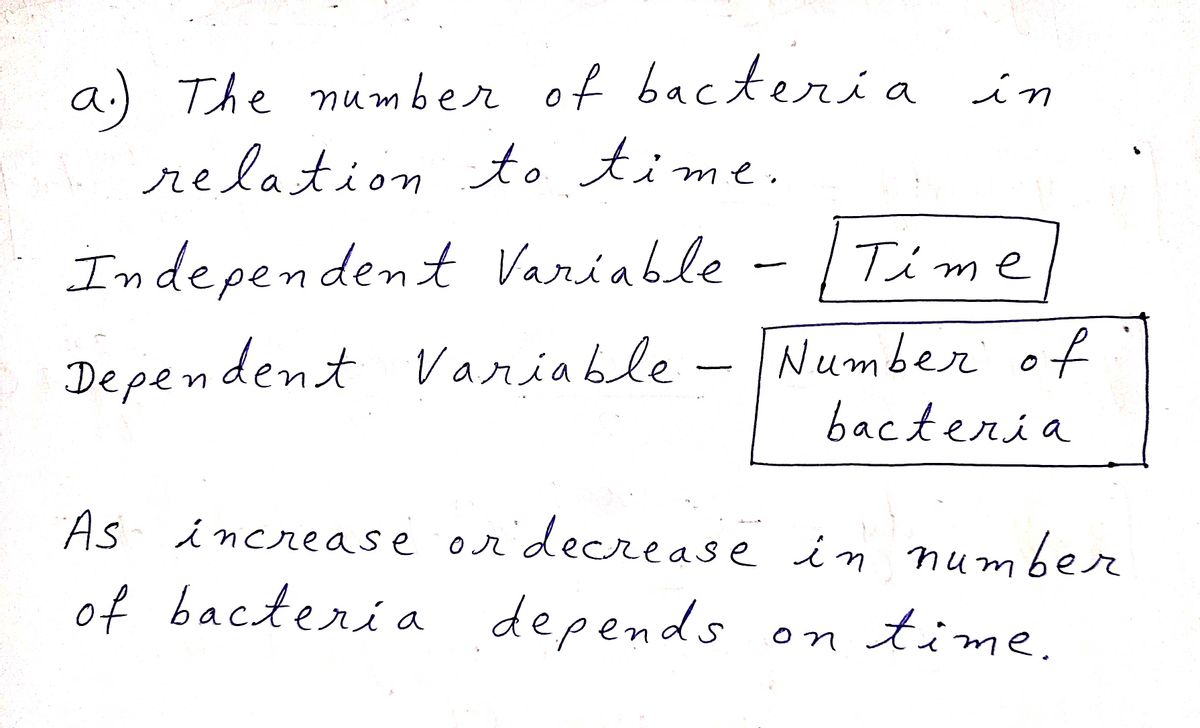 a.) The number of bacteria in
relation to time.
Independent Variable - Time
Dependent Variable - Number of
bacteria
As increase or decrease in number
of bacteria depends on time.